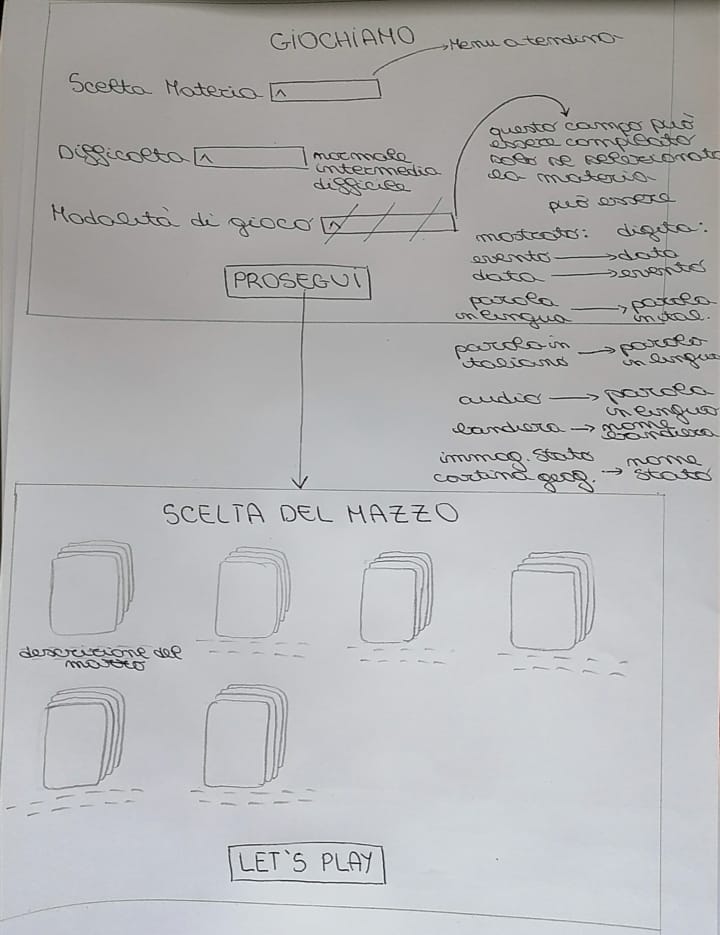 GIOCHIAMO
Menu a tendina
Scelta Materia
Difficolta
normale
intermedia
difficile
questo campo può
essere compilato
solo se selezionato
la materia
può essere
Modalità di gioco
mostrato: digita:
evento data
data evento
PROSEGUI
parola parola
in lingua in ital.
parola in parola
italiano in lingua
audio parola
in lingua
bandiera nome
bandiera
immag. Stato nome
cartina geog. Stato
SCELTA DEL MAZZO
descrizione del
mazzo
LET'S PLAY